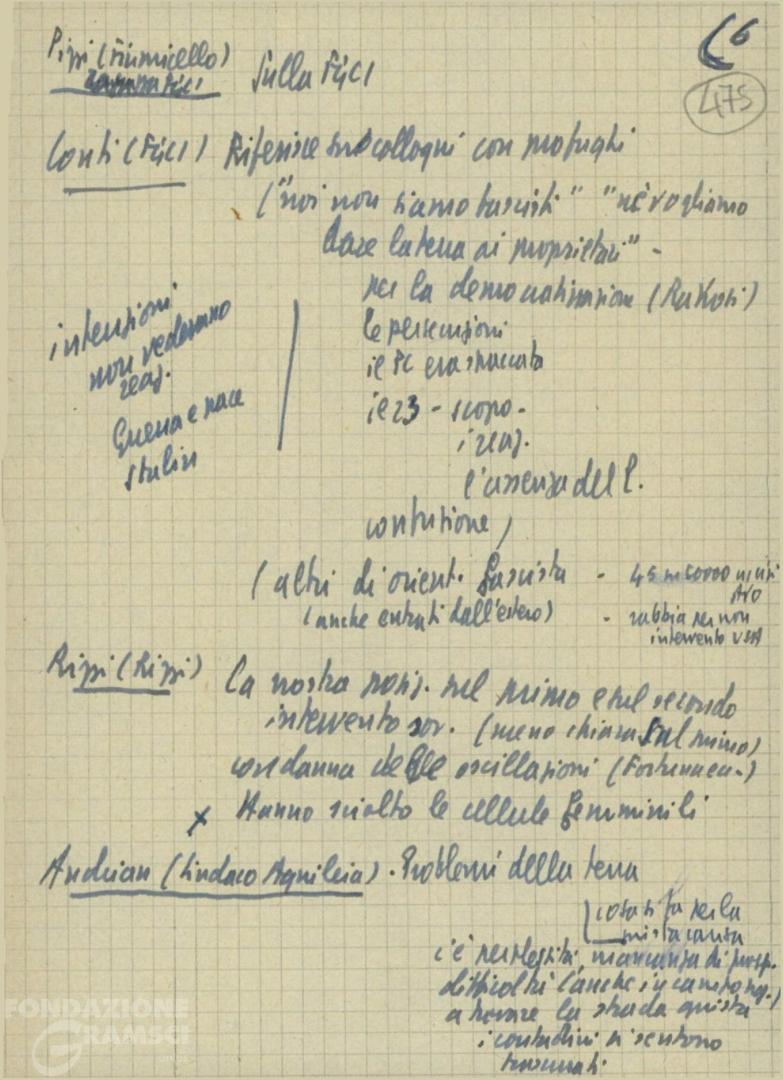 6
475
Pizzi (Fiumicello)
Sulla FGCI
Conti (FGCI) Riferisce su colloqui con profughi
("noi non siamo fascisti" "né vogliamo
dare la terra ai proprietari" -
per la democratizzazione (Rakosi)
le persecuzioni
il PC era staccato
il 23 - scopo.
i reaz.
l'assenza del P.
costituzione)
intenzioni
non vedevano
reaz.
Guerra e pace
Stalin
(altri di orient. fascista - 45 m 50000 
AVO
(anche entrati dall'estero) - rabbia per non
intervento USA
Rizzi (Rizzi) La nostra posiz. sul primo e sul secondo
intervento sov. (meno chiara sul primo)
condanna delle oscillazioni (Fortuna ecc.)
x Hanno sciolto le cellule femminili
Andrian (Sindaco Aquileia). Problemi della terra
cosa si fa per la
giusta causa
c'è perplessità, mancanza di prosp.
difficoltà (anche in campo naz.)
a trovare la strada giusta
i contadini si sentono
trascurati
FONDAZIONE
GRAMSCI